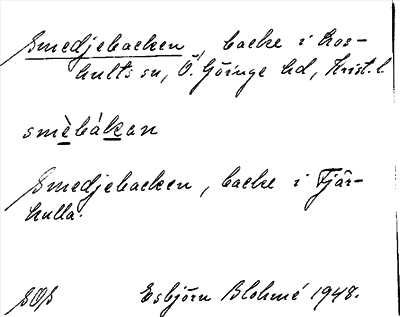 Smedjebacken, backe i Los-
hults sn, Ö. Göinge hd, Krist. l.
smèbákan
Smedjebacken, backe i Fjär-
hulla.
SOS Esbjörn Blohmé 1948.